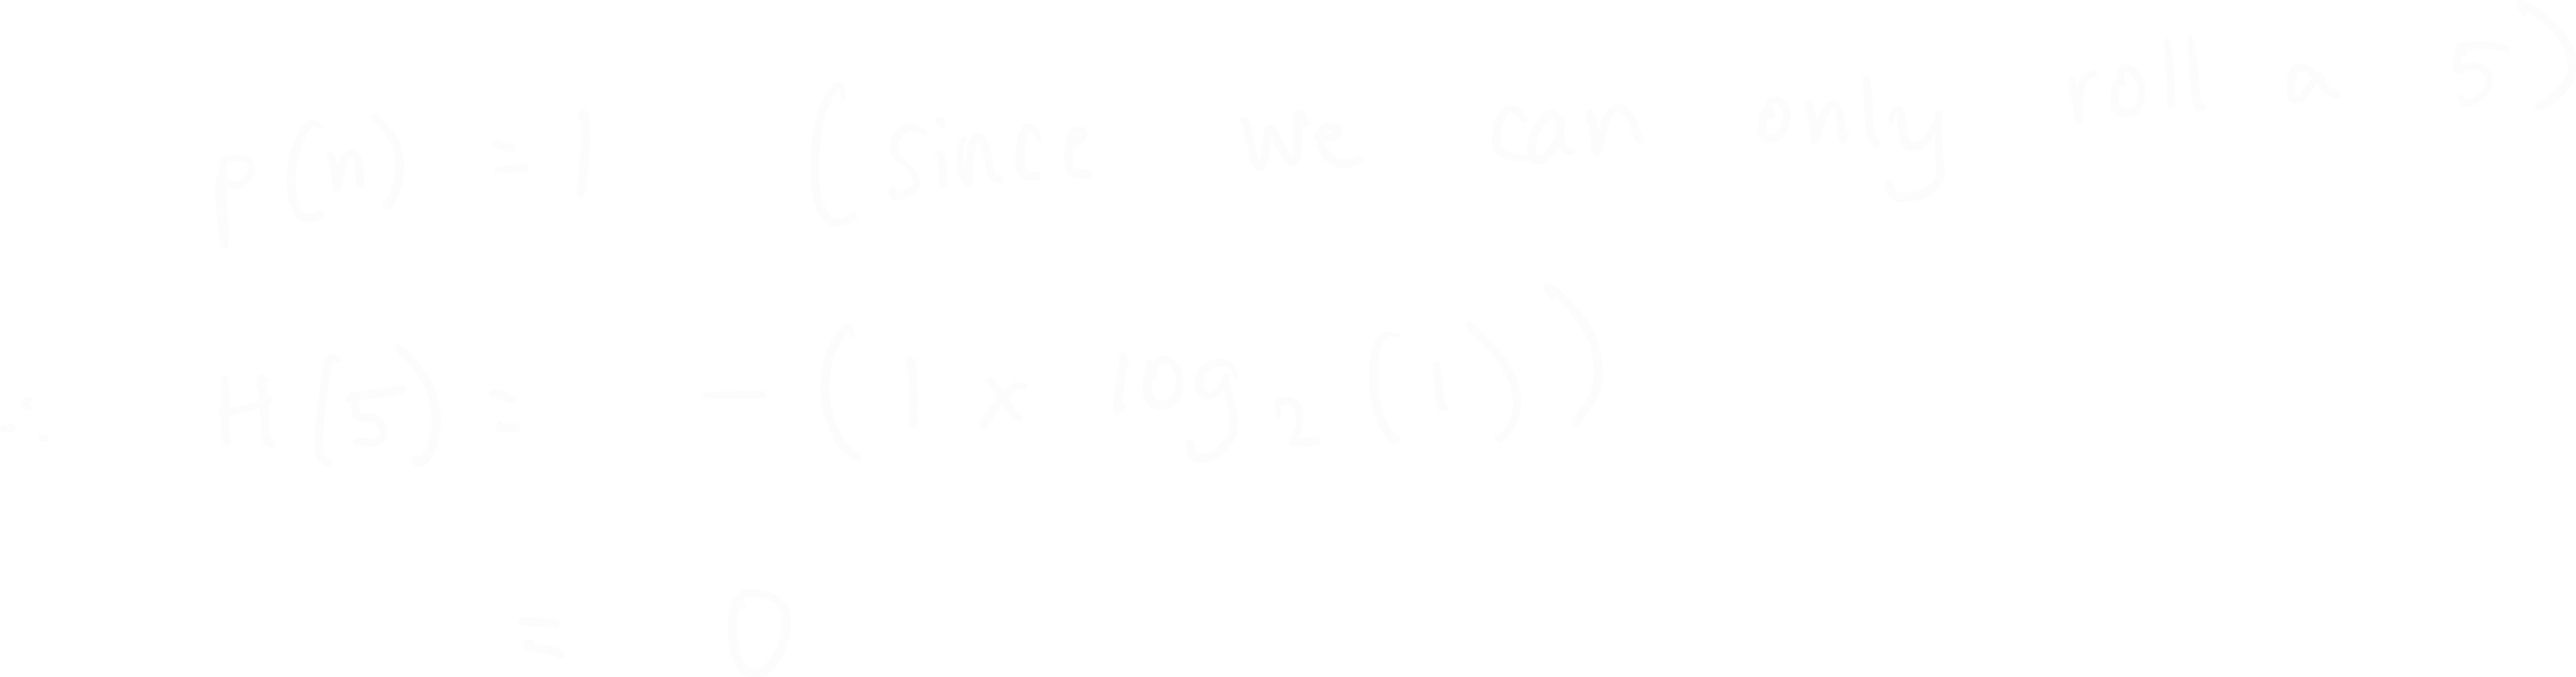 p(n) = 1 (since we can only roll a 5)
∴ H(5) = - (1 × log₂ (1))
= 0